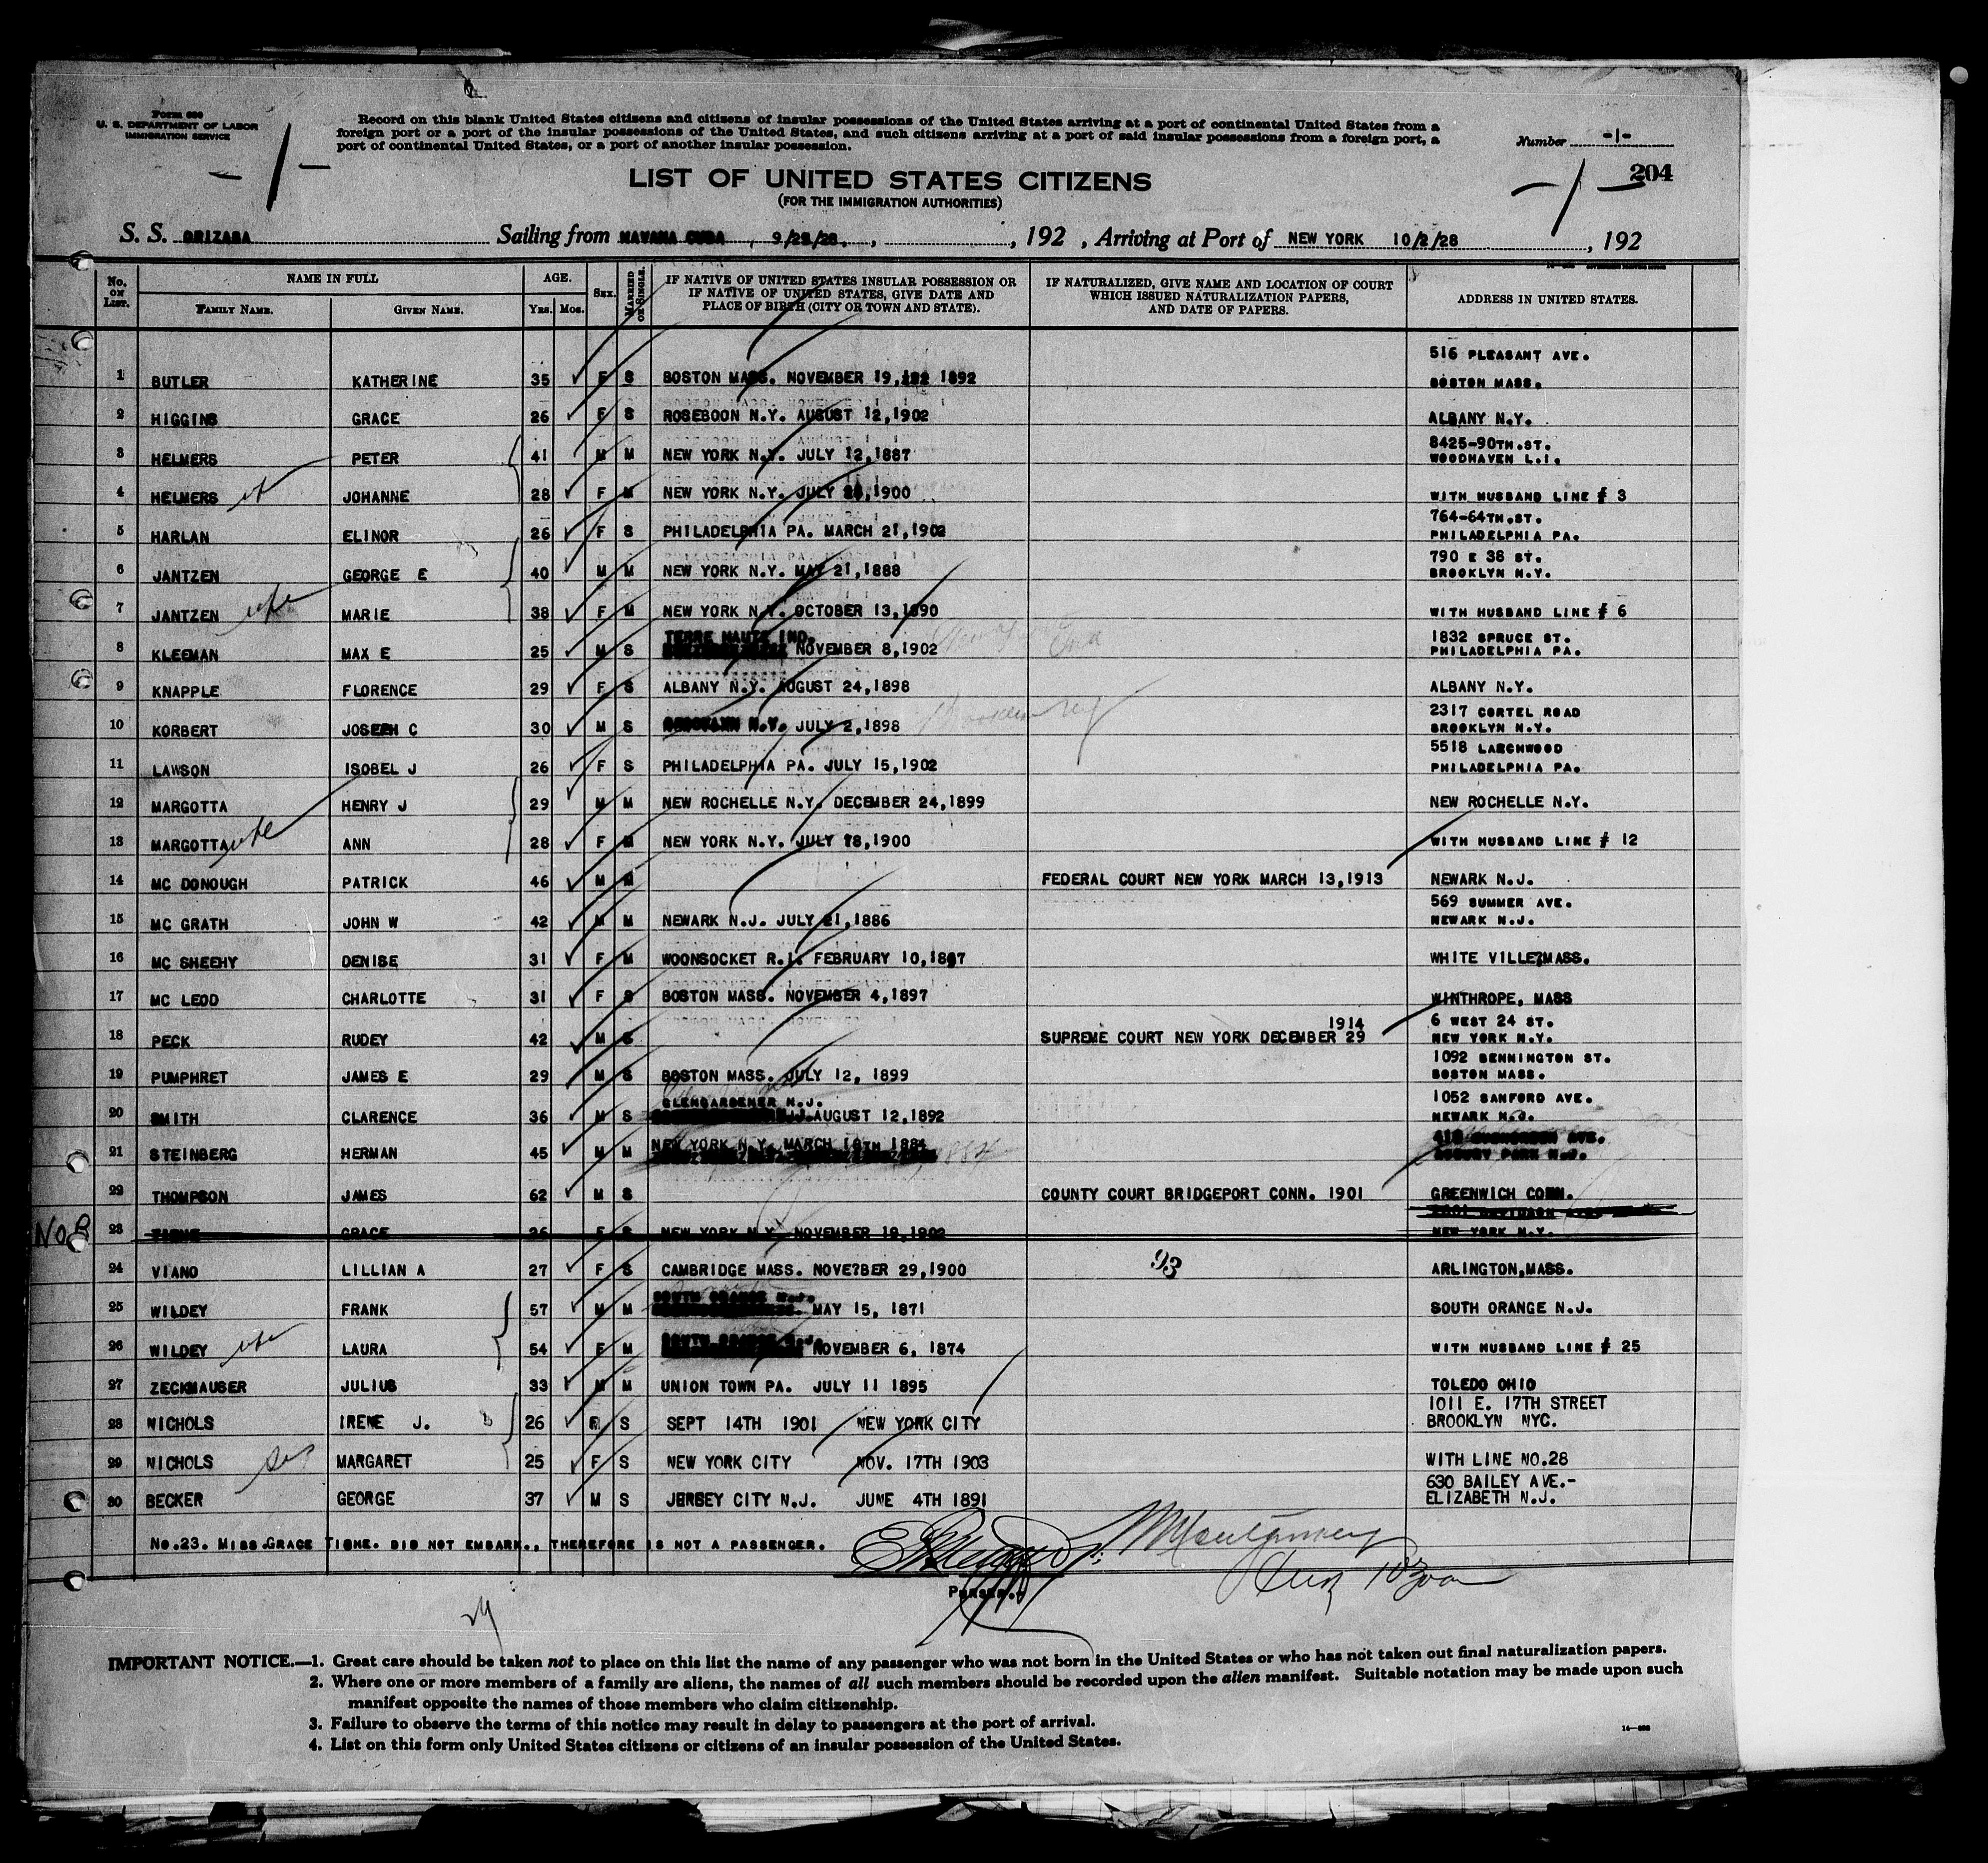 Form 630
U. S. DEPARTMENT OF LABOR
IMMIGRATION SERVICE
Record on this blank United States citizens and citizens of insular possessions of the United States arriving at a port of continental United States from a
foreign port or a port of the insular possessions of the United States, and such citizens arriving at a port of said insular possessions from a foreign port, a
port of continental United States, or a port of another insular possession.
Number -1-
-1-
-1-
204
LIST OF UNITED STATES CITIZENS
(FOR THE IMMIGRATION AUTHORITIES)
S. S. ORIZABA Sailing from HAVANA CUBA , 9/29/28. , , 192 , Arriving at Port of NEW YORK 10/2/28 , 192
No. ON LIST. NAME IN FULL AGE. SEX. MARRIED OR SINGLE. IF NATIVE OF UNITED STATES INSULAR POSSESSION OR IF NATIVE OF UNITED STATES, GIVE DATE AND PLACE OF BIRTH (CITY OR TOWN AND STATE). IF NATURALIZED, GIVE NAME AND LOCATION OF COURT WHICH ISSUED NATURALIZATION PAPERS, AND DATE OF PAPERS. ADDRESS IN UNITED STATES.
FAMILY NAME. GIVEN NAME. YRS. MOS.
516 PLEASANT AVE.
1 BUTLER KATHERINE 35 F S BOSTON MASS. NOVEMBER 19, 1892 BOSTON MASS.
2 HIGGINS GRACE 26 F S ROSEBOON N.Y. AUGUST 12,1902 ALBANY N.Y.
8425-90TH.ST.
3 HELMERS PETER 41 M M NEW YORK N.Y. JULY 12,1887 WOODHAVEN L.I.
4 HELMERS wf JOHANNE 28 F M NEW YORK N.Y. JULY ,1900 WITH HUSBAND LINE # 3
764-64TH.ST.
5 HARLAN ELINOR 26 F S PHILADELPHIA PA. MARCH 21,1902 PHILADELPHIA PA.
790 E 38 ST.
6 JANTZEN GEORGE E 40 M M NEW YORK N.Y. MAY 21,1888 BROOKLYN N.Y.
7 JANTZEN wife MARIE 38 F M NEW YORK N.Y. OCTOBER 13,1890 WITH HUSBAND LINE # 6
TERRE HAUTE IND. 1832 SPRUCE ST.
8 KLEEMAN MAX E 25 M S NOVEMBER 8,1902 PHILADELPHIA PA.
9 KNAPPLE FLORENCE 29 F S ALBANY N.Y. AUGUST 24,1898 ALBANY N.Y.
2317 CORTEL ROAD
10 KORBERT JOSEPH C 30 M S BROOKLYN N.Y. JULY 2,1898 Brooklyn NY BROOKLYN N.Y.
5518 LARCHWOOD
11 LAWSON ISOBEL J 26 F S PHILADELPHIA PA. JULY 15,1902 PHILADELPHIA PA.
12 MARGOTTA HENRY J 29 M M NEW ROCHELLE N.Y. DECEMBER 24,1899 NEW ROCHELLE N.Y.
13 MARGOTTA wife ANN 28 F M NEW YORK N.Y. JULY 18,1900 WITH HUSBAND LINE # 12
14 MC DONOUGH PATRICK 46 M M FEDERAL COURT NEW YORK MARCH 13,1913 NEWARK N.J.
569 SUMMER AVE.
15 MC GRATH JOHN W 42 M M NEWARK N.J. JULY 21,1886 NEWARK N.J.
16 MC SHEEHY DENISE 31 F M WOONSOCKET R.I. FEBRUARY 10,1897 WHITE VILLE?MASS.
17 MC LEOD CHARLOTTE 31 F S BOSTON MASS. NOVEMBER 4,1897 WINTHROPE, MASS
1914 6 WEST 24 ST.
18 PECK RUDEY 42 M S SUPREME COURT NEW YORK DECEMBER 29 NEW YORK N.Y.
1092 BENNINGTON ST.
19 PUMPHRET JAMES E 29 M S BOSTON MASS. JULY 12, 1899 BOSTON MASS.
GLENGARDENER N.J. 1052 SANFORD AVE.
20 SMITH CLARENCE 36 M S AUGUST 12,1892 NEWARK N.J.
NEW YORK N.Y. MARCH 19TH 1884 AVE.
21 STEINBERG HERMAN 45 M M 1884 ASBURY PARK N.J.
22 THOMPSON JAMES 62 M S COUNTY COURT BRIDGEPORT CONN. 1901 GREENWICH CONN.
No 3
23 TIGHE GRACE 26 F S NEW YORK N.Y. NOVEMBER 19,1902 NEW YORK N.Y.
24 VIANO LILLIAN A 27 F S CAMBRIDGE MASS. NOVE?BER 29,1900 93 ARLINGTON,MASS.
SOUTH ORANGE N.J.
25 WILDEY FRANK 57 M M MAY 15, 1871 SOUTH ORANGE N.J.
SOUTH ORANGE N.J.
26 WILDEY wife LAURA 54 F M NOVEMBER 6, 1874 WITH HUSBAND LINE # 25
27 ZECKHAUSER JULIUS 33 M M UNION TOWN PA. JULY 11 1895 TOLEDO OHIO
1011 E. 17TH STREET
28 NICHOLS IRENE J. 26 F S SEPT 14TH 1901 NEW YORK CITY BROOKLYN NYC.
29 NICHOLS sis MARGARET 25 F S NEW YORK CITY NOV. 17TH 1903 WITH LINE NO.28
630 BAILEY AVE.-
30 BECKER GEORGE 37 M S JERSEY CITY N.J. JUNE 4TH 1891 ELIZABETH N.J.
No.23. MISS.GRACE TIGHE. DID NOT EMBARK., THEREFORE IS NOT A PASSENGER.
Montgomery
PURSER.
IMPORTANT NOTICE.—1. Great care should be taken not to place on this list the name of any passenger who was not born in the United States or who has not taken out final naturalization papers.
2. Where one or more members of a family are aliens, the names of all such members should be recorded upon the alien manifest. Suitable notation may be made upon such
manifest opposite the names of those members who claim citizenship.
3. Failure to observe the terms of this notice may result in delay to passengers at the port of arrival.
4. List on this form only United States citizens or citizens of an insular possession of the United States.